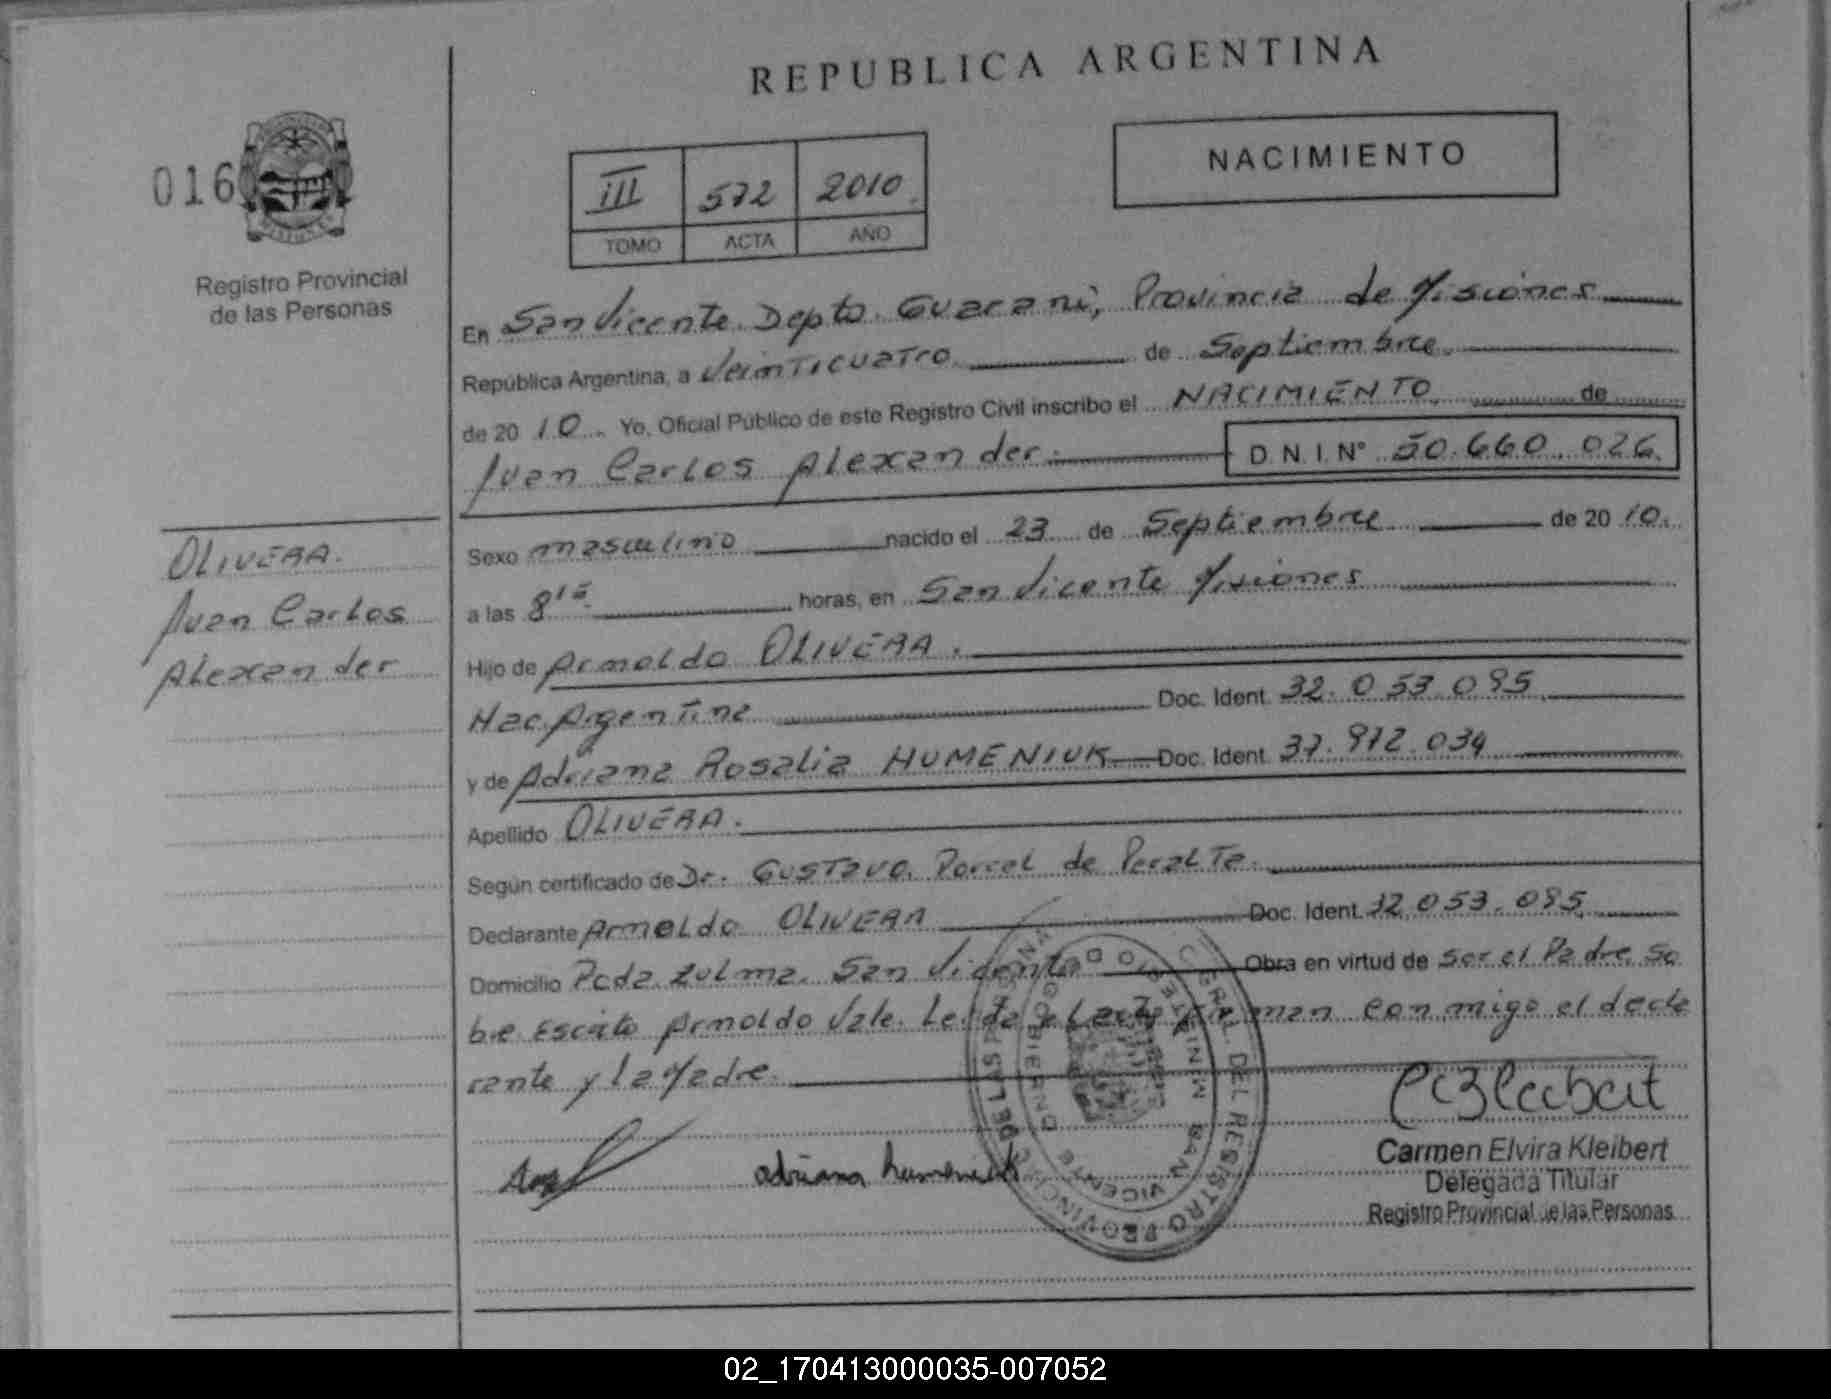 REPUBLICA ARGENTINA
NACIMIENTO
016
III 572 2010
TOMO ACTA AÑO
Registro Provincial
de las Personas
En San Vicente Depto. Guarani, Provincia de Misiones
República Argentina, a Veinticuatro de Septiembre
de 20 10. Yo, Oficial Público de este Registro Civil inscribo el NACIMIENTO de
Juan Carlos Alexander. D.N.I.Nº 50.660.026.
Sexo masculino nacido el 23 de Septiembre de 20 10.
OLIVERA.
Juan Carlos
Alexander
a las 8 15 horas, en San Vicente Misiones
Hijo de Arnoldo OLIVERA.
Nac. Argentina Doc. Ident. 32.053.085
y de Adriana Rosalia HUMENIUK Doc. Ident. 37.972.034
Apellido OLIVERA.
Según certificado de Dr. Gustavo Porcel de Peralta.
Declarante Arnoldo OLIVERA Doc. Ident. 32.053.085
Domicilio Pcda. Zulma. San Vicente Obra en virtud de ser el Padre. So
b.e Escrito Arnoldo Vale. Leida el acta firman conmigo el decla
rante y la Madre.
adriana humeniuk
REGISTRO PROVINCIAL DE LAS PERSONAS
MINISTERIO DE GOBIERNO
SAN VICENTE
Carmen Elvira Kleibert
Delegada Titular
Registro Provincial de las Personas
02_170413000035-007052